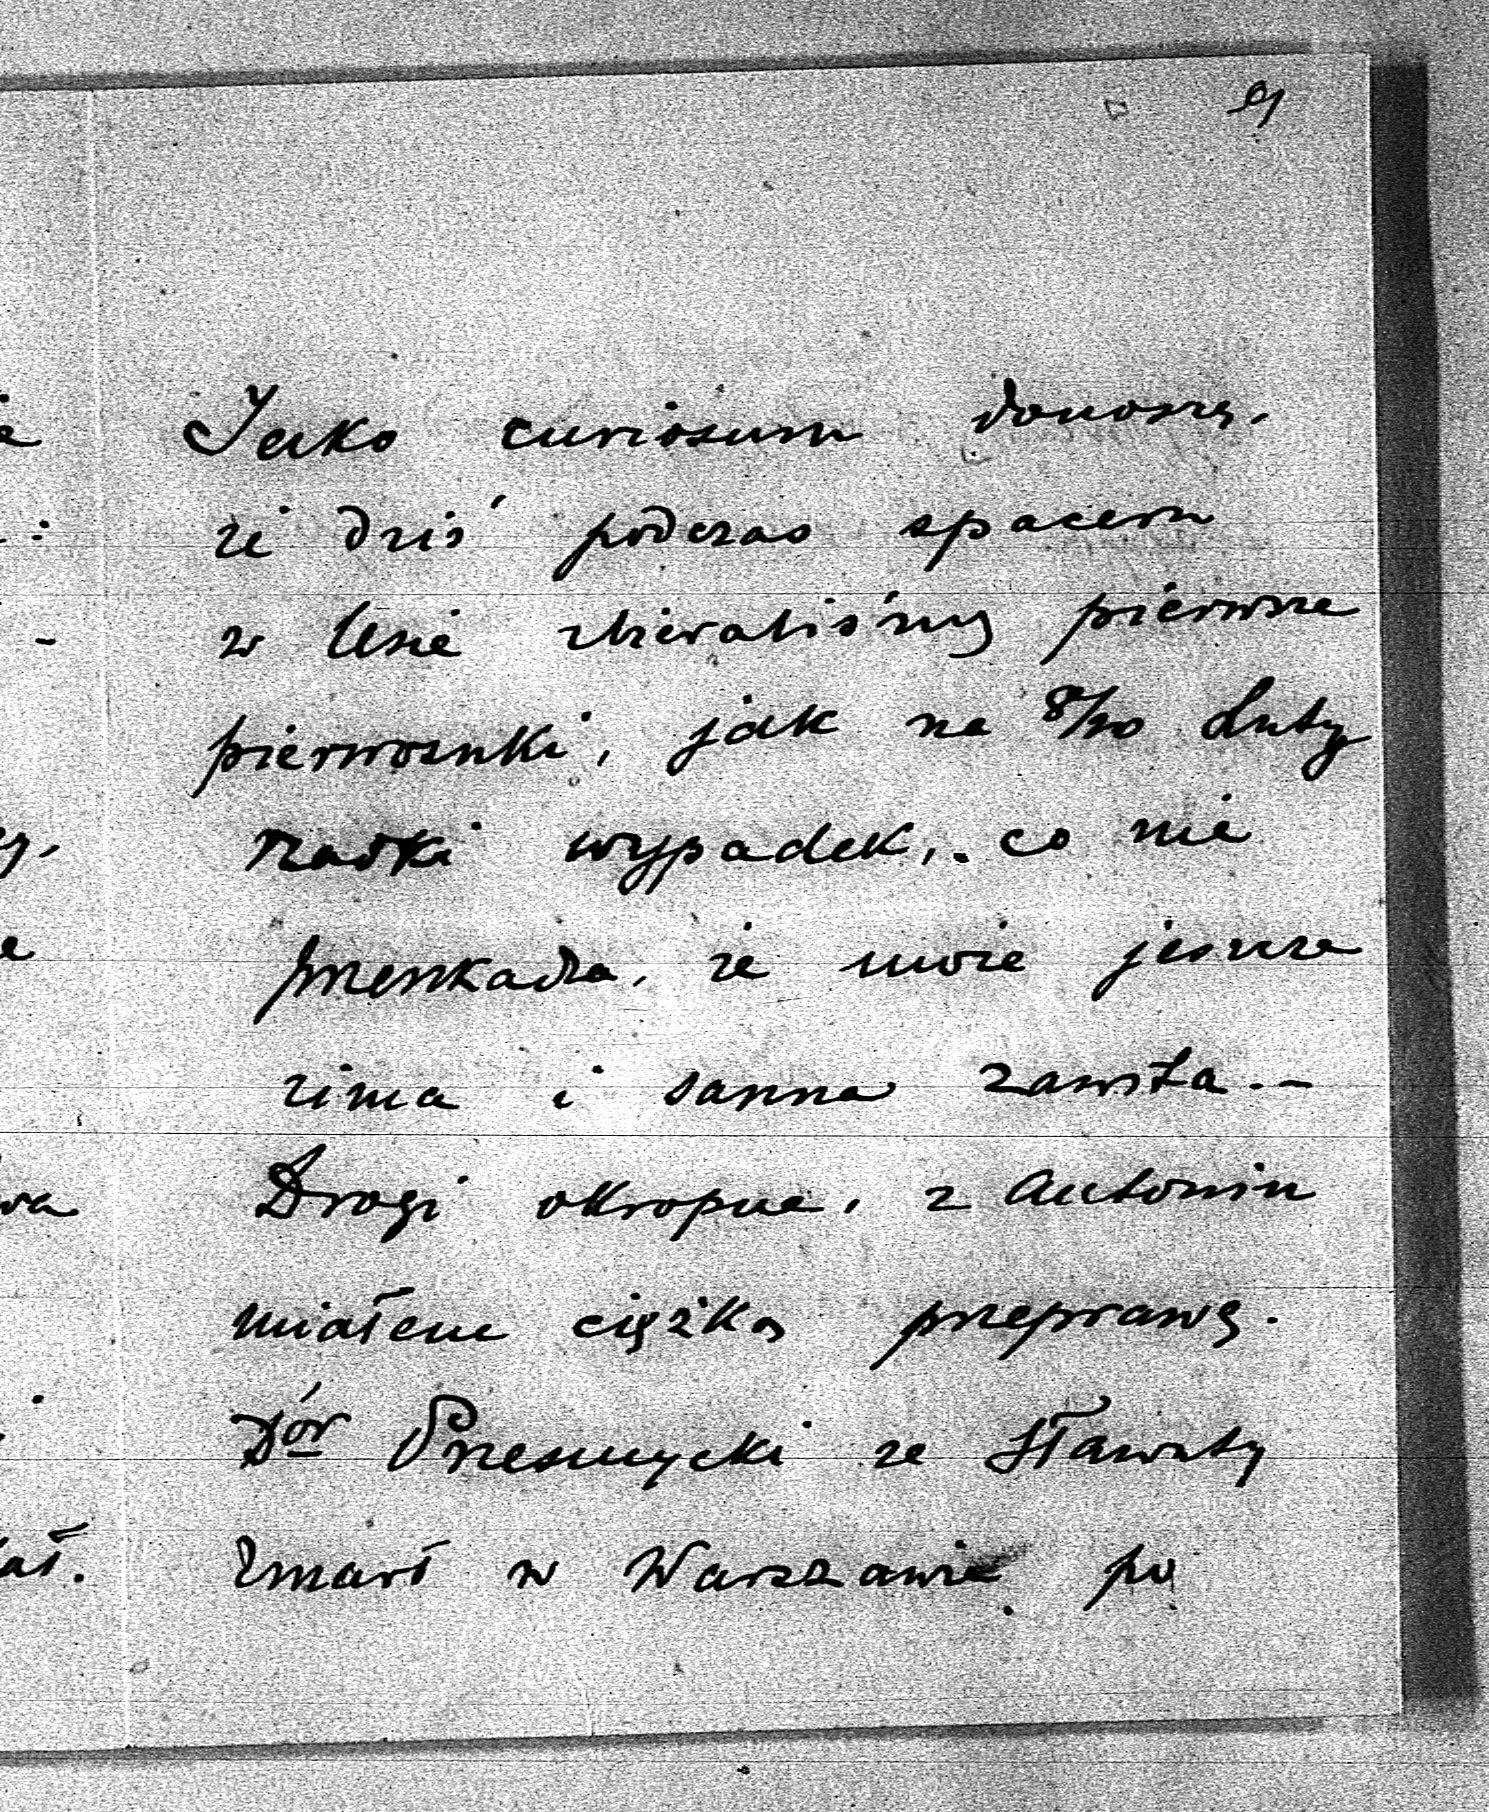 91
Jako curiosum donoszę,
że dziś podczas spaceru
w lesie zbieraliśmy pierwsze
pierwiosnki, jak na 8/20 Luty
rzadki wypadek, co nie
przeszkadza, że może jeszcze
zima i sanna zawita. –
Drogi okropne, z Antonin
miałem ciężką przeprawę.
Dór Przesmycki ze Sławuty
Zmarł w Warszawie po